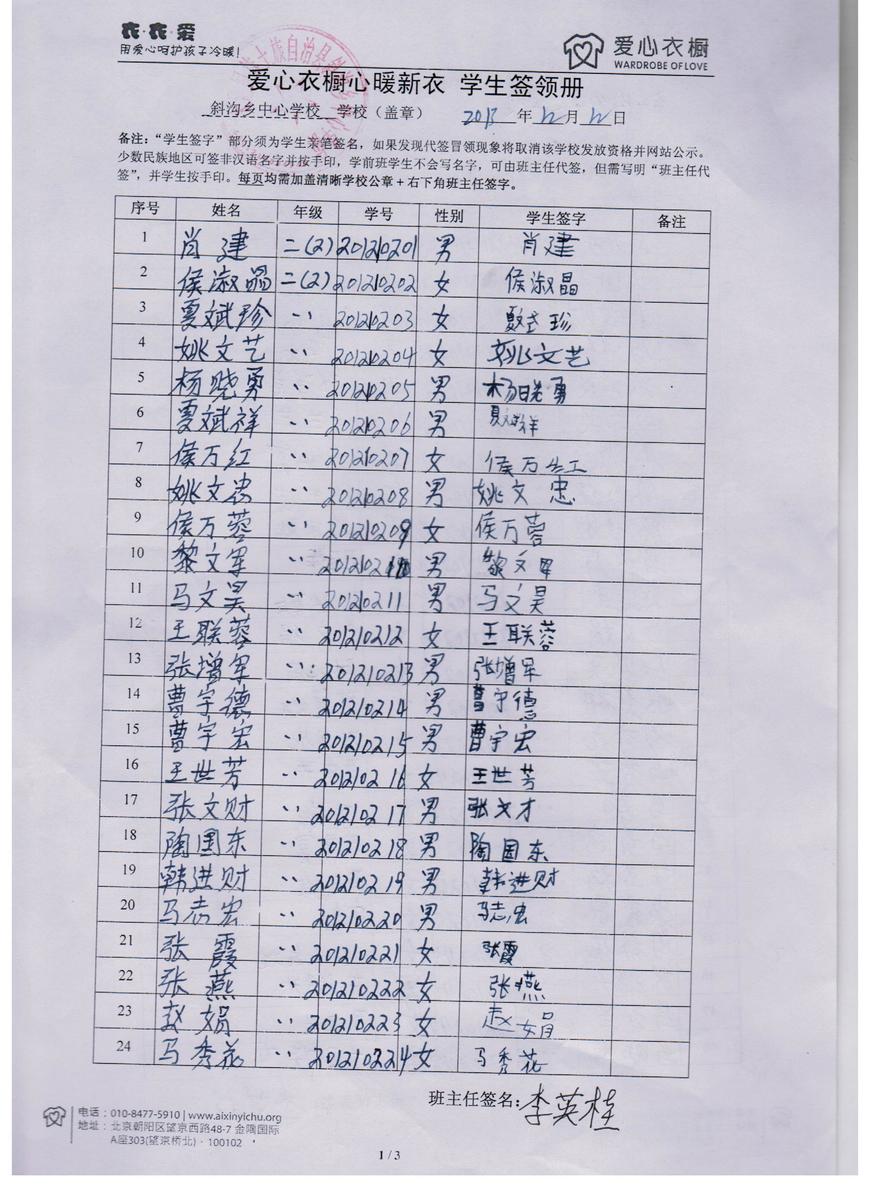 衣·衣·爱
用爱心呵护孩子冷暖!
爱心衣橱
WARDROBE OF LOVE
土族自治县
爱心衣橱心暖新衣 学生签领册
斜沟乡中心学校 学校（盖章） 2013 年 12 月 12 日
备注：“学生签字”部分须为学生亲笔签名，如果发现代签冒领现象将取消该学校发放资格并网站公示。
少数民族地区可签非汉语名字并按手印，学前班学生不会写名字，可由班主任代签，但需写明“班主任代
签”，并学生按手印。每页均需加盖清晰学校公章+右下角班主任签字。
序号 姓名 年级 学号 性别 学生签字 备注
1 肖建 二(2) 201210201 男 肖建
2 侯淑晶 二(2) 201210202 女 侯淑晶
3 夏斌珍 〃 201210203 女 夏斌珍
4 姚文艺 〃 201210204 女 姚文艺
5 杨晓勇 〃 201210205 男 杨晓勇
6 夏斌祥 〃 201210206 男 夏斌祥
7 侯万红 〃 201210207 女 侯万红
8 姚文忠 〃 201210208 男 姚文忠
9 侯万蓉 〃 201210209 女 侯万蓉
10 黎文军 〃 201210210 男 黎文军
11 马文昊 〃 201210211 男 马文昊
12 王联蓉 〃 201210212 女 王联蓉
13 张增军 〃 201210213 男 张增军
14 曹宇德 〃 201210214 男 曹宇德
15 曹宇宏 〃 201210215 男 曹宇宏
16 王世芳 〃 201210216 女 王世芳
17 张文财 〃 201210217 男 张文才
18 陶国东 〃 201210218 男 陶国东
19 韩进财 〃 201210219 男 韩进财
20 马志宏 〃 201210220 男 马志宏
21 张霞 〃 201210221 女 张霞
22 张燕 〃 201210222 女 张燕
23 赵娟 〃 201210223 女 赵娟
24 马秀花 〃 201210224 女 马秀花
班主任签名: 李英桂
电话：010-8477-5910 | www.aixinyichu.org
地址：北京朝阳区望京西路48-7 金隅国际
A座303(望京桥北)·100102
1 / 3